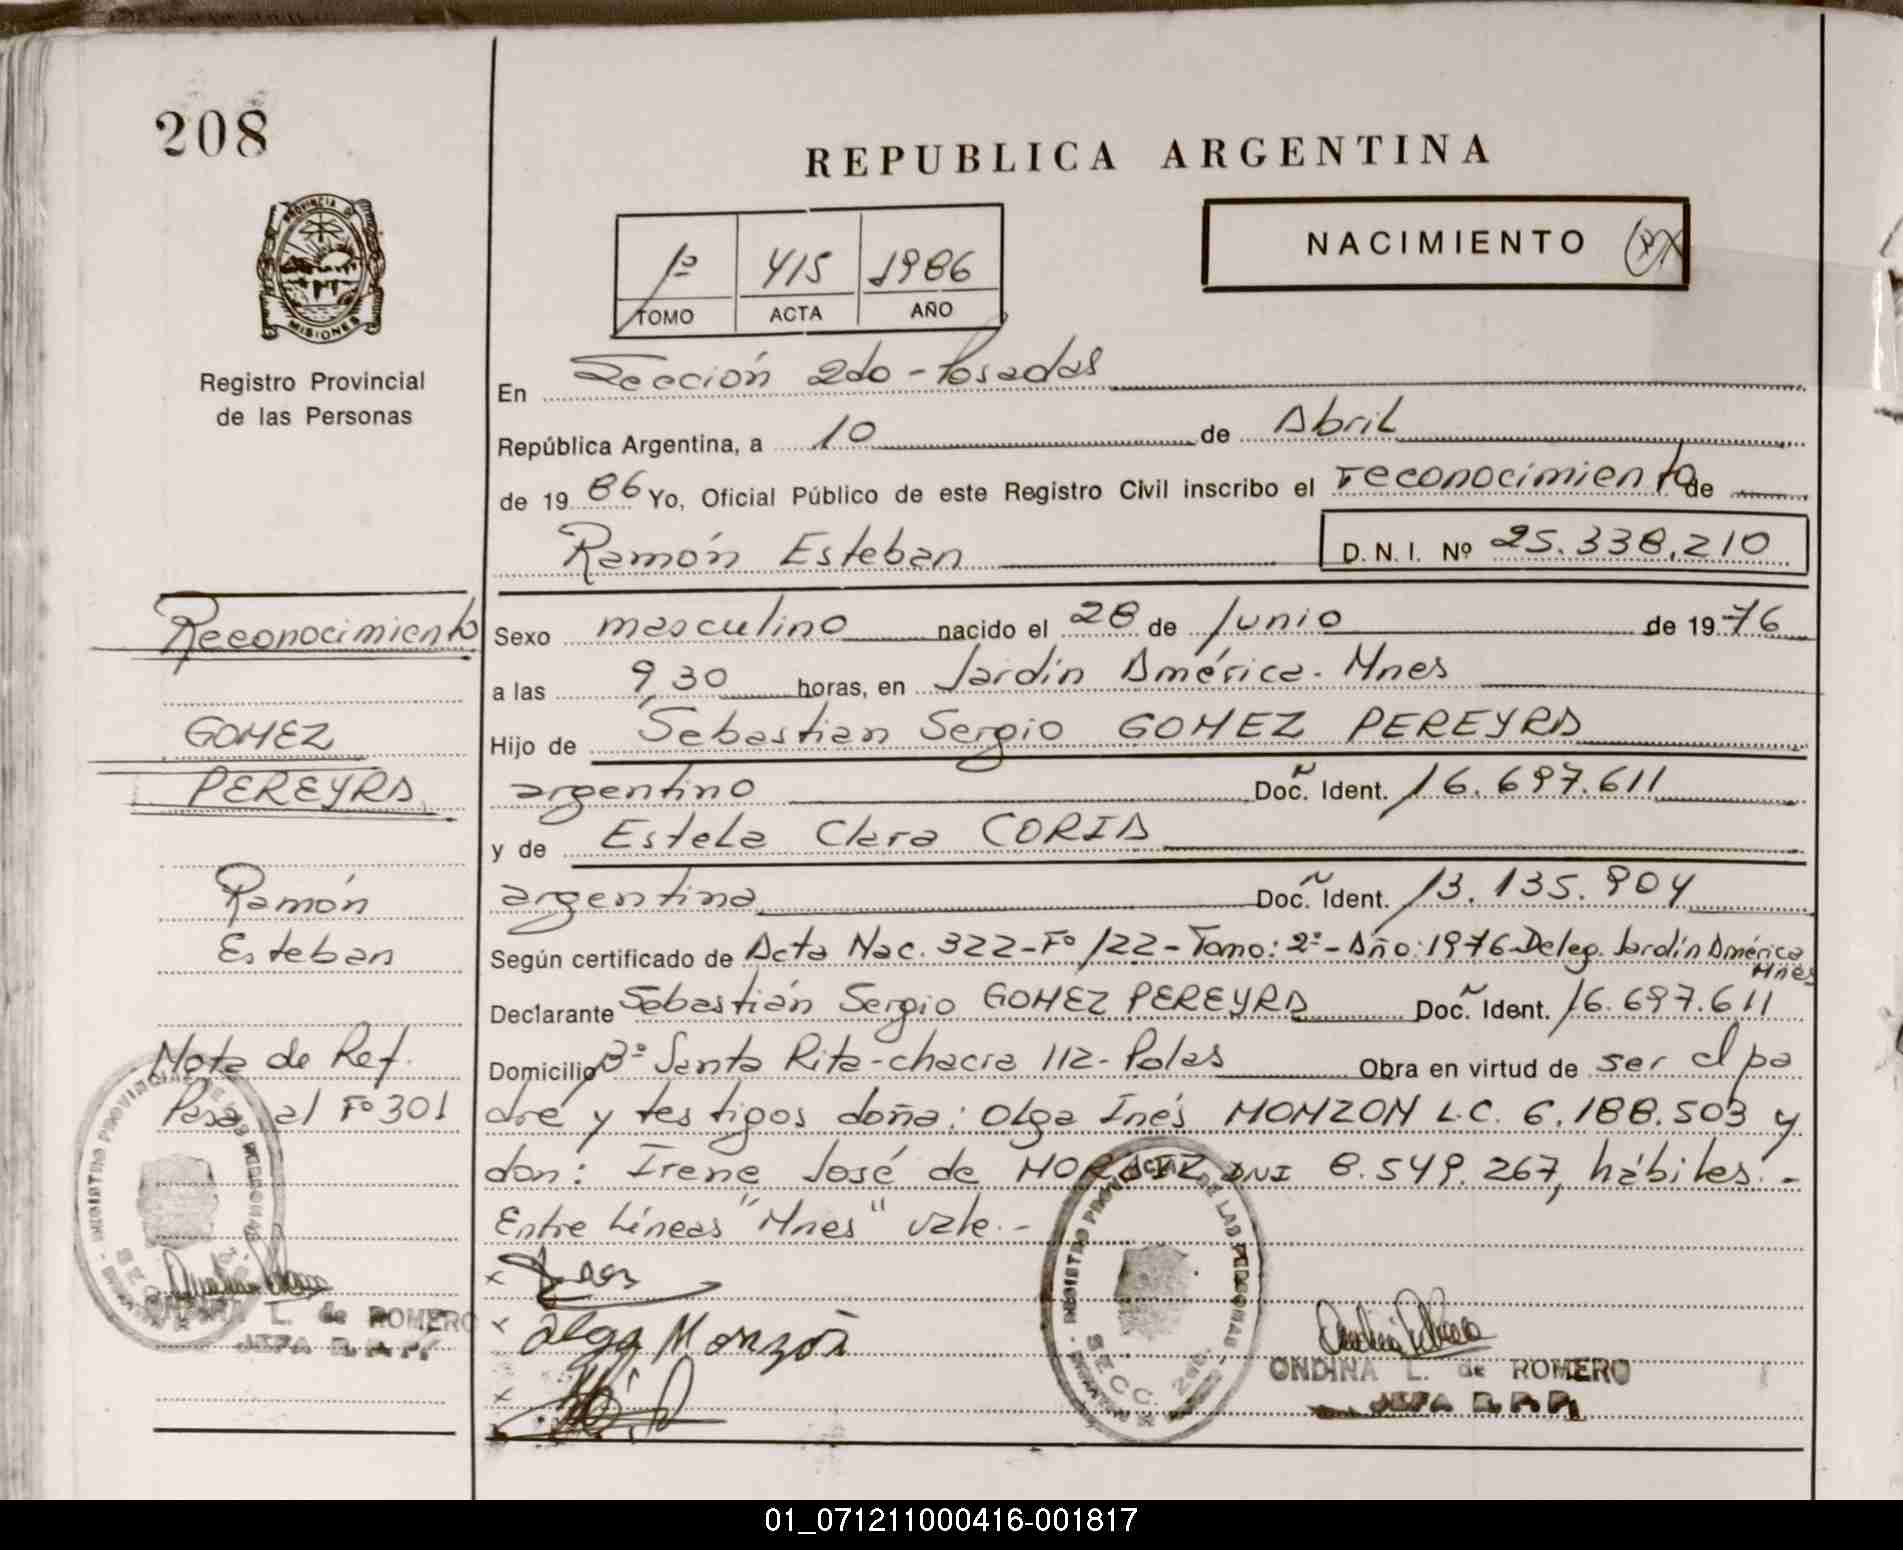 208
PROVINCIA DE
MISIONES
Registro Provincial
de las Personas
REPUBLICA ARGENTINA
1º 415 1986
TOMO ACTA AÑO
NACIMIENTO
En Sección 2do - Posadas
República Argentina, a 10 de Abril
de 1986 Yo, Oficial Público de este Registro Civil inscribo el reconocimiento de
Ramón Esteban D. N. I. Nº 25.338.210
Sexo masculino nacido el 28 de Junio de 1976
a las 9,30 horas, en Jardín América. Mnes
Hijo de Sebastian Sergio GOMEZ PEREYRA
argentino Doc. Ident. 16.697.611
y de Estela Clara CORIA
argentina Doc. Ident. 13.135.904
Según certificado de Acta Nac. 322-Fº 122-Tomo: 2º-Año: 1976-Deleg. Jardín América
Mnes
Declarante Sebastián Sergio GOMEZ PEREYRA Doc. Ident. 16.697.611
Domicilio Bº Santa Rita-chacra 112-Pdas Obra en virtud de ser el pa
dre y testigos doña: Olga Inés MONZON L.C. 6.188.503 y
don: Irene José de DNI 8.549.267, hábiles.-
Entre líneas "Mnes" vale.-
Olga Monzón
ONDINA L. de ROMERO
JEFA R.P.P.
Reconocimiento
GOMEZ
PEREYRA
Ramón
Esteban
Nota de Ref.
Pasa al Fº 301
L. de ROMERO
JEFA R.P.P.
REGISTRO PROVINCIAL DE LAS PERSONAS
SECC. 2da.
01_071211000416-001817